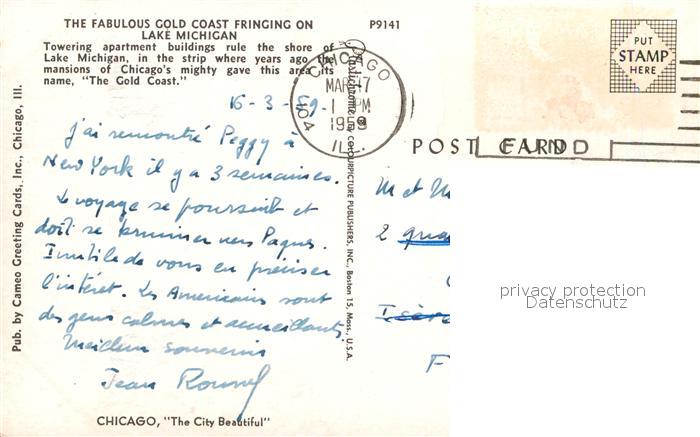 THE FABULOUS GOLD COAST FRINGING ON
LAKE MICHIGAN
P9141
Towering apartment buildings rule the shore of
Lake Michigan, in the strip where years ago the
mansions of Chicago's mighty gave this area its
name, "The Gold Coast."
CHICAGO
MAR 17
1 PM
1959
ILL.
104
PUT
STAMP
HERE
POST CARD
FUND
16-3-59.
J'ai remontré Peggy à
New York il y a 3 semaines.
Le voyage se poursuit et
doit se terminer vers Paques.
Inutile de vous en préciser
l'intéret. Les Americains sont
des gens calmes et accueillants.
Meilleur souvenir
Jean
M et M
2 quai
Isère
F
Pub. by Cameo Greeting Cards, Inc., Chicago, Ill.
Plastichrome by COLOURPICTURE PUBLISHERS, INC., Boston 15, Mass., U.S.A.
privacy protection
Datenschutz
CHICAGO, "The City Beautiful"